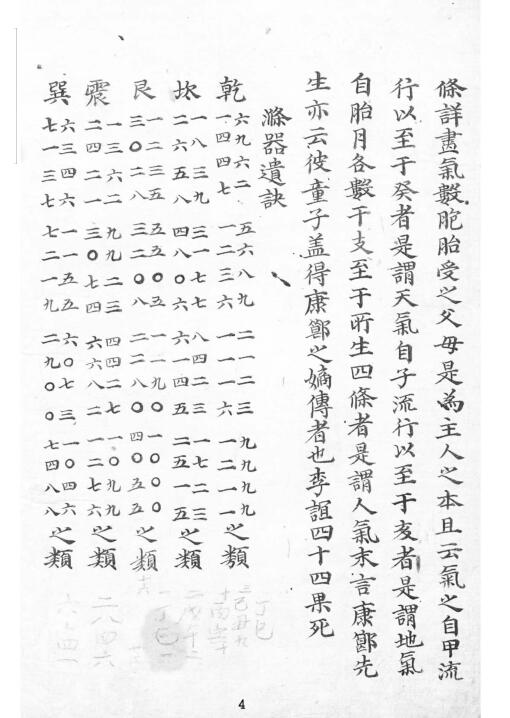 條詳畫氣數胞胎受之父母是為主人之本且云氣之自甲流
行以至于癸者是謂天氣自子流行以至于亥者是謂地氣
自胎月各數干支至于所生四條者是謂人氣末言康鄭先
生亦云彼童子盖得康鄭之嫡傳者也李誼四十四果死
滌器遺訣
乾 六九六二 五六八九 二一二三 九九九九
一四四七 一二三六 一一一六 一二一一 之類
坎 一八三九 三一七七 八四二三 一七二三
二六五八 四八〇六 六一四五 二五一五 之類
艮 一二三五 五五〇五 一一九〇 一〇〇〇
三〇二八 三二〇八 二二八〇 四〇五五 之類
震 一三六二 九九二三 四四二七 一〇九九
二四二一 三〇七四 六六八二 一二七六 之類
巽 六三四六 一一五五 六〇七三 一〇四六
七一三七 七二一九 二九〇〇 七四八八 之類
4